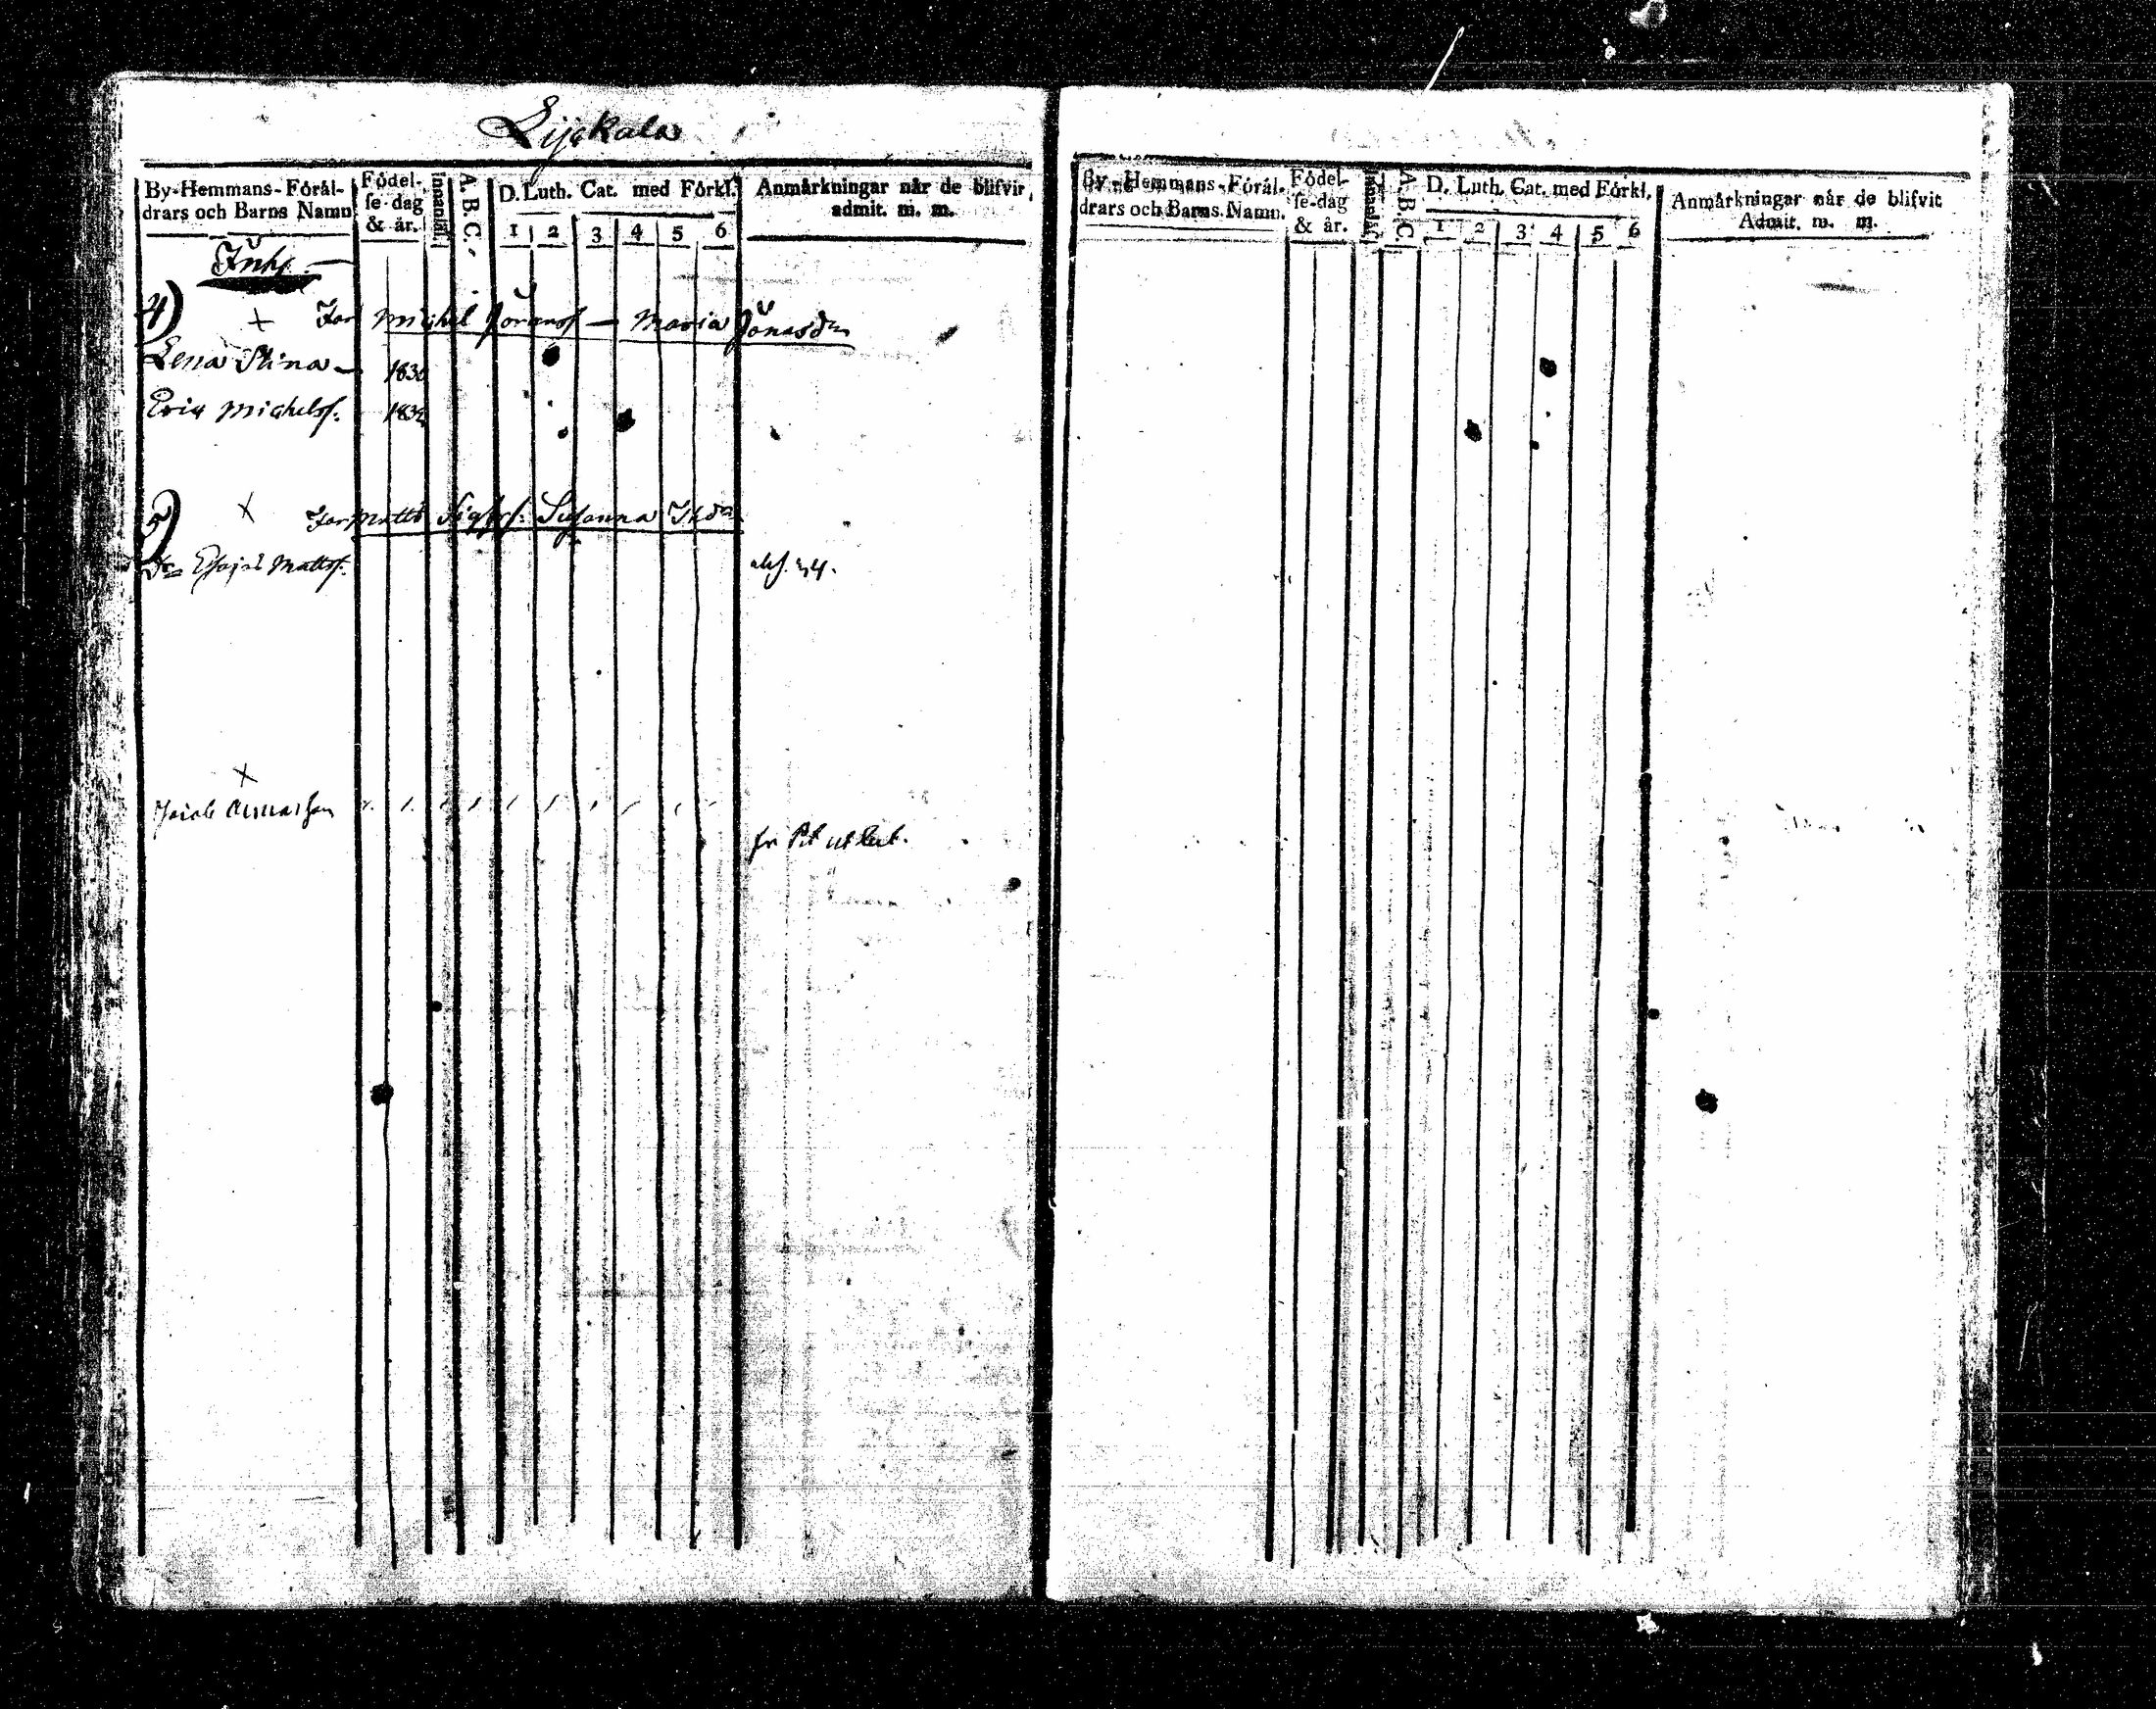 Lijckala
By-Hemmans-Förål-
drars och Barns Namn
Födel-
se-dag
& år.
Innanläs.
A. B. C.
D. Luth. Cat. med Förkl.
1 2 3 4 5 6
Anmårkningar når de blifvit
admit. m. m.
Inhs.
4) x Tor Michel Jöranss — Maria Jonasdr
Lena Stina — 1830
Eric Michelss. 1832
5) x Tor Matts Sigfrs. Susanna
Esajas Mattss.
x
Jacob
By-Hemmans-Förål-
drars och Barns Namn.
Födel-
se-dag
& år.
Innanläs.
A. B. C.
D. Luth. Cat. med Förkl.
1 2 3 4 5 6
Anmårkningar når de blifvit
Admit. m. m.